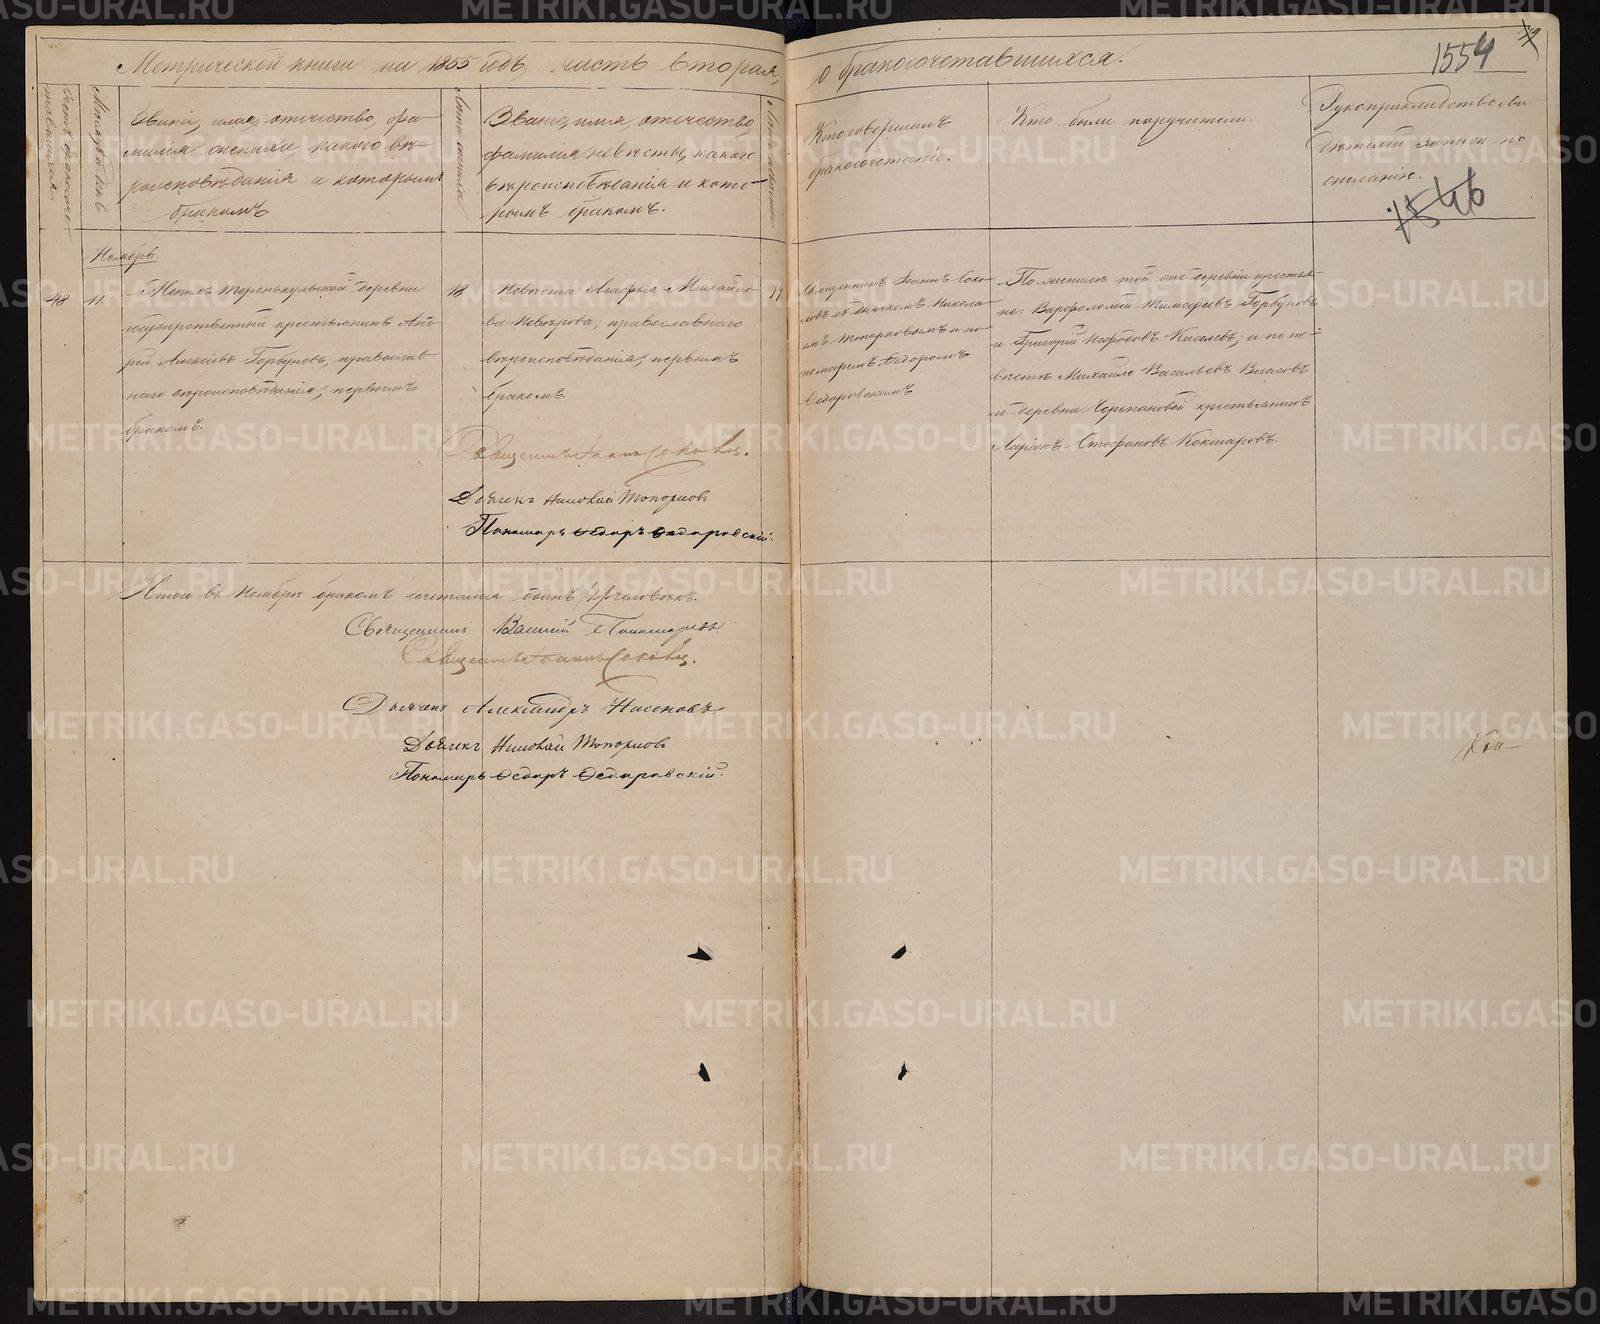 Метрической книги на 1855 годъ, часть вторая,
о бракосочетавшихся.
1554
Счетъ бракосоче-
тавшихся.
Мѣсяцъ и день
Званіе, имя, отечество, фа-
милія жениха, какого вѣ-
роисповѣданія и которымъ
бракомъ
Лѣта жениха
Званіе, имя, отечество,
фамилія невѣсты, какого
вѣроисповѣданія и кото-
рымъ бракомъ.
Лѣта невѣсты
Кто совершалъ
бракосочетаніе.
Кто были поручители.
Рукоприкладство сви-
дѣтелей записи по
желанію.
1546
Ноябрь.
48
11.
Женихъ Теренькульской деревни
государственный крестьянинъ Анд-
рей Алексѣевъ Горбуновъ, православ-
наго вѣроисповѣданія, первымъ
бракомъ.
18
Невѣста Агафья Михайло-
ва православнаго
вѣроисповѣданія, первымъ
бракомъ.
Священникъ Іоаннъ Соко-
ловъ съ дьячкомъ Никола-
емъ Топорковымъ и по-
номаремъ Ѳедоромъ
Ѳедоровскимъ
По женихѣ той же деревни крестья-
не: Варфоломей Тимофеевъ Горбуновъ
и Григорій Нефодовъ Киселевъ; и по не-
вѣстѣ Михайло Васильевъ Власовъ
и деревни Черепановой крестьянинъ
Ларіонъ Стефановъ Кокшаровъ.
Священникъ Іоаннъ Соколовъ.
Дьячекъ Николай Топорковъ
Пономарь Ѳедоръ Ѳедоровскій.
Итого въ Ноябрѣ бракомъ сочетался одинъ человѣкъ.
Священникъ Василій Пономаревъ
Священникъ Іоаннъ Соколовъ.
Дьячекъ Александръ Насоновъ
Дьячекъ Николай Топорковъ
Пономарь Ѳедоръ Ѳедоровскій.
METRIKI.GASO-URAL.RU